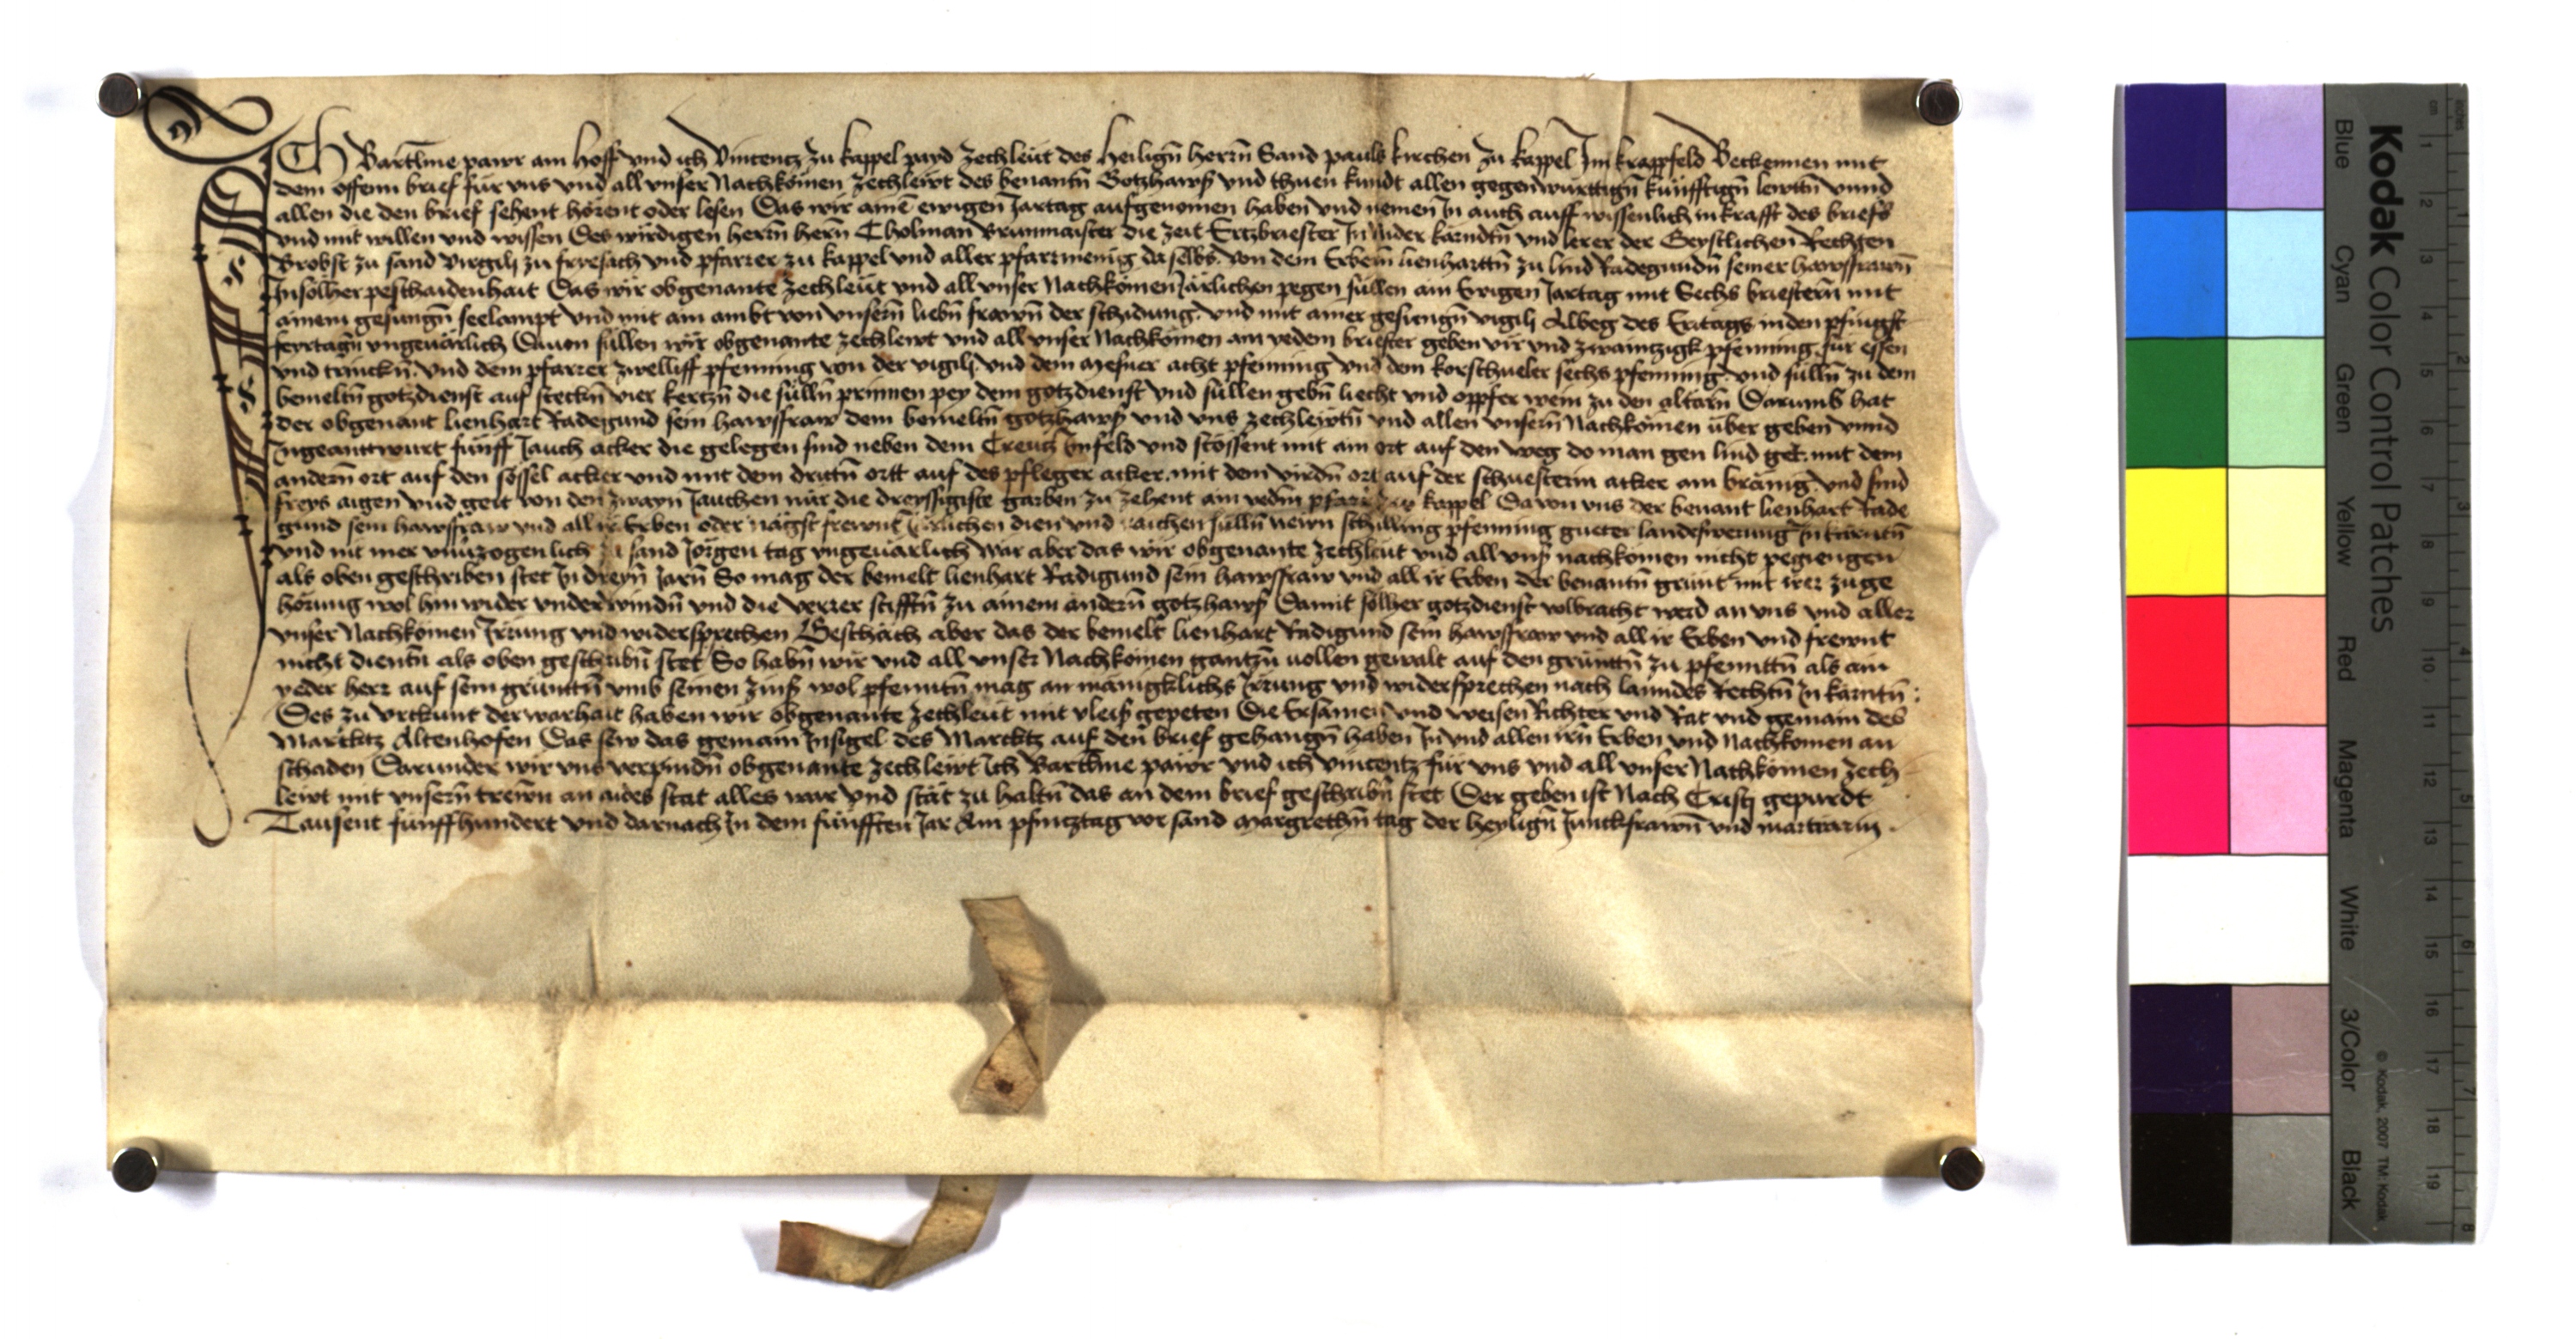 ICh Bartlme pawr am Hoff und ich Vincentz zu kappel payd zechleut des heiligñ herrñ Sand pauls kirchen zu kappel Im krappfeld Bekennen mit
dem offenn brief fur vns vnd all vnser Nachkömen zechlewt des benantñ Gotzhawß vnd thuen kundt allen gegenwurttigñ künfftigñ lewttñ vnnd
allen die den brief sehent hörent oder lesen Das wir ainē ewigen Jartag aufgenomen haben vnd nemen In auch auff wissenlich in krafft des briefs
vnd mit willen vnd wissen des wirdigen herrñ herñ Cholman Brunmaister die zeit Ertzbriester In vnder kärndtñ vnd lerer der Geystlichen Rechten
Brobst zu sand Virgilj zu friesach vnd pfarrer zu kappel vnd aller pfarrmenig daselbs von dem Erbern lienharttñ zu lind Radegundñ seiner hawsfrawñ
In sölher peschaidenhait Das wir obgenante zechleut vnd all vnser Nachkömen Järlichen pegen süllen ain Ewigen Jartag mit Sechs briesterñ mit
ainem gesungñ seelampt vnd mit am ambt von vnserñ liebñ frawñ der schidung vnd mit ainer gesungñ vigilj Albeg des Eritags in den pfingst
feyrtagñ vngeuärlich Dauon süllen wir obgenante zechlewt vnd all vnser Nachkömen am yedem briester geben vir vnd zwaintzigk pfenning für essen
vnd trinckñ vnd dem pfarrer zwelliff pfenning von der vigilj vnd dem Mesner acht pfenning vnd dem korschueler sechs pfenning vnd süllñ zu dem
bemeltñ gotzdienst auf steckñ vier kertzñ die süllñ prinnen pey dem gotzdienst vnd süllen gebñ liecht vnd oppfer wein zu den altärñ Darumb hat
der obgenant lienhart Radegund sein hawsfraw dem bemeltñ gotzhawß vnd vns zechlewtñ vnd allen vnserñ Nachkömen über geben vnnd
Ingeanttwurt fünff Jauch acker die gelegen sind neben dem Creutz Im feld vnd stossent mit am ort auf den weg do man gen lind get mit dem
anderñ ort auf den sössel acker vnd mit dem drittñ ortt auf des pfleger acker mit dem virdñ ort auf der schuesterin acker am bränig vnd sind
freys aigen vnd geit von den zwayñ Jauchen nür die dreyssigiste garben zu zehent am yedm pfarrer zu kappel Da von vns der benant lienhart Rade
gund sein hawsfraw vnd all ir Erben oder nägst frewnt Järlichen dien vnd raichen süllñ newn schilling pfenning gueter landeswerung In kärntñ
vnd nit mer vnuerzogenlich zu sand Jörgen tag vngeuärlich wär aber das wir obgenante zechleut vnd all vnß nachkomen nicht pegiengen
als oben geschriben stet In dreyñ Jarñ So mag der bemelt lienhart Radigund sein hawsfraw vnd all ir Erben der benantñ grünt mit irer zuge
hörung wol hin wider vnderwindñ vnd die verrer stifftñ zu ainem anderñ gotzhawß Damit sölher gotzdienst volbracht werd an vns vnd aller
vnser Nachkömen Irrung vnd widersprechen Geschäch aber das der bemelt lienhart Radigund sein hawsfraw vnd all ir Erben vnd frewnt
nicht dientñ als oben geschribñ stet So habñ wir vnd all vnser Nachkömen gantzñ vollen gewalt auf den grünttñ zu pfenttñ als ain
yeder herr auf sein grünttñ vmb seinen zinß wol pfenntñ mag an mänigklichs Irrung vnd widersprechen nach lanndes Rechtñ In kärntñ :
Des zu vrkunt der warhait haben wir obgenante zechleut mit vleiß gepeten Die Ersamen vnd weisen Richter vnd Rat vnd gemain des
Marcktz Altenhofen Das sew das gemain Insigel des Marcktz auf den brief gehangñ haben In vnd allen irñ Erben vnd Nachkomen an
schaden Darunder wir vns verpindñ obgenante zechlewt Ich Bartlme pawr vnd ich vincentz für vns vnd all vnser Nachkömen zech
lewt mit vnserñ trewn an aides stat alles war vnd stät zu haltñ das an dem brief geschribñ stet Der geben ist Nach Cristj gepurdt
Tausent fünffhundert vnd darnach In dem fünfften Jar Am pfintztag vor sand Margrethñ tag der heyligñ Junckfrawñ vnd martrarin .
Kodak Color Control Patches
Blue Cyan Green Yellow Red Magenta White 3/Color Black
© Kodak, 2007 TM: Kodak
cm 1 2 3 4 5 6 7 8 9 10 11 12 13 14 15 16 17 18 19
inches 1 2 3 4 5 6 7 8